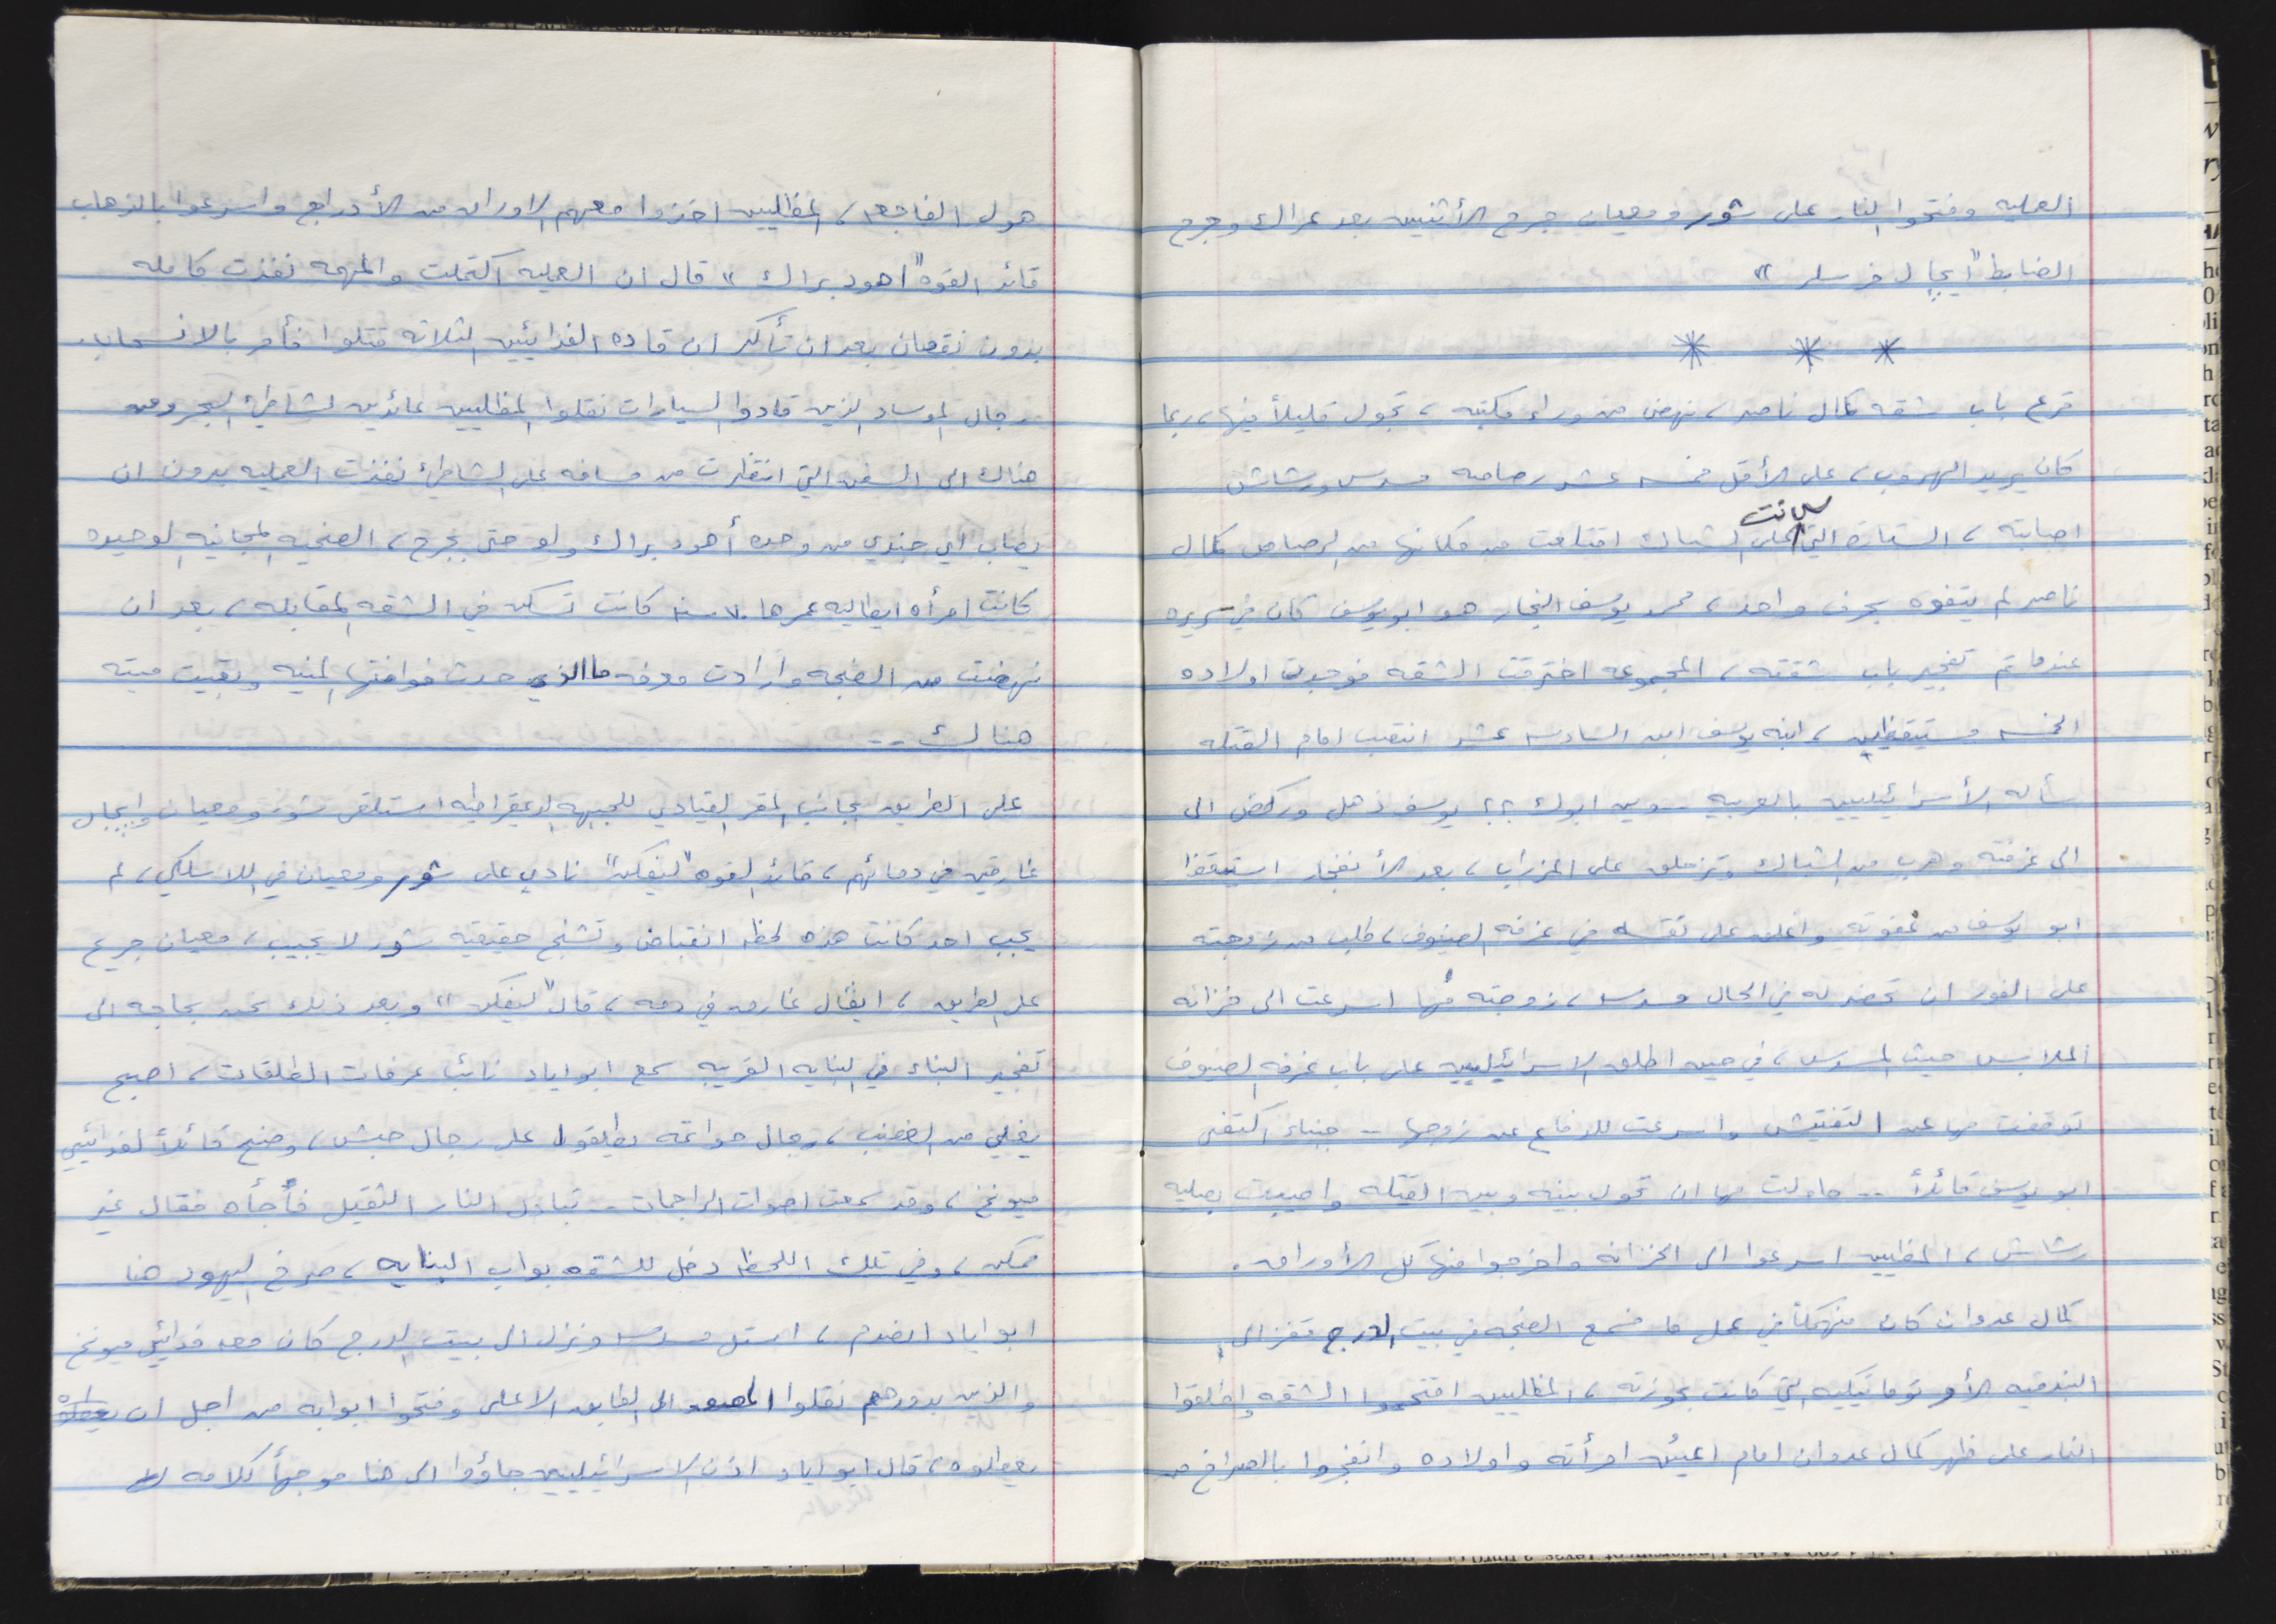 العمليه وفتحوا النار على شور ومعيان جرح الأثنيين بعد عراك وجرح
الضابط "ايجال خرسلر"
* * *
قرع باب شقه كمال ناصر، نهض من وراء مكتبه، تجول قليلاً فيها، ربما
كان يريد الهروب، على الأقل خمسه عشر رصاصه مسدس ورشاش
اصابته، الستاره التي كانت على الشباك اقتلعت من مكانها من الرصاص كمال
ناصر لم يتفوه بحرف واحد، محمد يوسف النجار هو ابو يوسف كان في سريره
عندما تم تفجير باب شقته، المجموعه اخترقت الشقه فوجدت اولاده
الخمسه مستيقظين، ابنه يوسف ابن السادسه عشر انتصب امام القتله
سأله الأسرائيليين بالعربيه - وين ابوك ؟؟ يوسف ذهل وركض الى
الى غرفته وهرب من الشباك وتزحلق على المزراب، بعد الأنفجار استيقظ
ابو يوسف من غفوته واغلق على نفسه في غرفه الضيوف، طلب من زوجته
على الفور ان تحضر له في الحال مسدسه، زوجته مها اسرعت الى خزانه
الملابس حيث المسدس، في حين اطلق الاسرائيليين على باب غرفه الضيوف
توقفت مها عن التفتيش واسرعت للدفاع عن زوجها -- جبناء اكتفى
ابو يوسف قائلاً -- حاولت مها ان تحول بينه وبين القتله واصيبت بصليه
رشاش، المظليين اسرعوا الى الخزانه واخرجوا منها كل الأوراق.
كمال عدوان كان منهمكاً في عمل ما فسمع الضجه في بيت الدرج قفز الى
البندقيه الأوتوماتيكيه التي كانت بحوزته، المظليين اقتحموا الشقه واطلقوا
النار على ظهر كمال عدوان امام اعين امرأته واولاده وانفجروا بالصراخ من
هول الفاجعه، المظليين اخذوا معهم الاوراق من الأدراج واسرعوا بالذهاب
قائد القوه "اهود براك" قال ان العمليه اكتملت والمهمه نفذت كامله
بدون نقصان بعد ان تأكد ان قاده الفدائيين الثلاثه قتلوا فأمر بالانسحاب.
رجال الموساد الذين قادوا السيارات نقلوا المظليين عائدين لشاطئ البحر ومن
هناك الى السفن التي انتظرت من مسافه على الشاطئ نفذت العمليه بدون ان
يصاب اي جندي من وحده أهود براك ولو حتى بجرح، الضحيه المجانيه الوحيده
كانت امرأه ايطاليه عمرها ٧٠ سنه كانت تسكن في الشقه المقابله، بعد ان
نهضت من الضجه وارادت معرفه ما الذي حدث فوافتها المنيه وبقيت ميته
هنالك --
على الطريق بجانب المقر القيادي للجبهه الديمقراطيه استلقى شور ومعيان وايجال
غارقين في دمائهم، قائد القوه "ليفكن" نادي على شور ومعيان في اللاسلكي، لم
يجب احد كانت هذه لحظه انقباض وتشنج حقيقيه شور لا يجيب، معيان جريح
على الطريق، ايقال غارق في دمه، قال "ليفكن" وبعد ذلك نحن بحاجه الى
تفجير البناء في البنايه القريبه سمع ابو اياد نائب عرفات الطلقات، اصبح
يغلي من الغضب، رجال حواتمه يطلقون على رجال حبش، وضح قائلاً لفدائيي
ميونخ، وقد سمعت اصوات الراجمات -- تبادل النار الثقيل فأجأه فقال غير
ممكن، وفي تلك اللحظه دخل للشقه بواب البنايه، صرخ اليهود هنا
ابو اياد انصدم، استل مسدسه ونزل الى بيت الدرج كان معه فدائيي ميونخ
والذين بدورهم نقلوا المصعد الى الطابق الاعلى وفتحوا ابوابه من اجل ان
يعطلوه، قال ابو اياد اذن الاسرائيليين جاؤوا الى هنا موجهاً كلامه